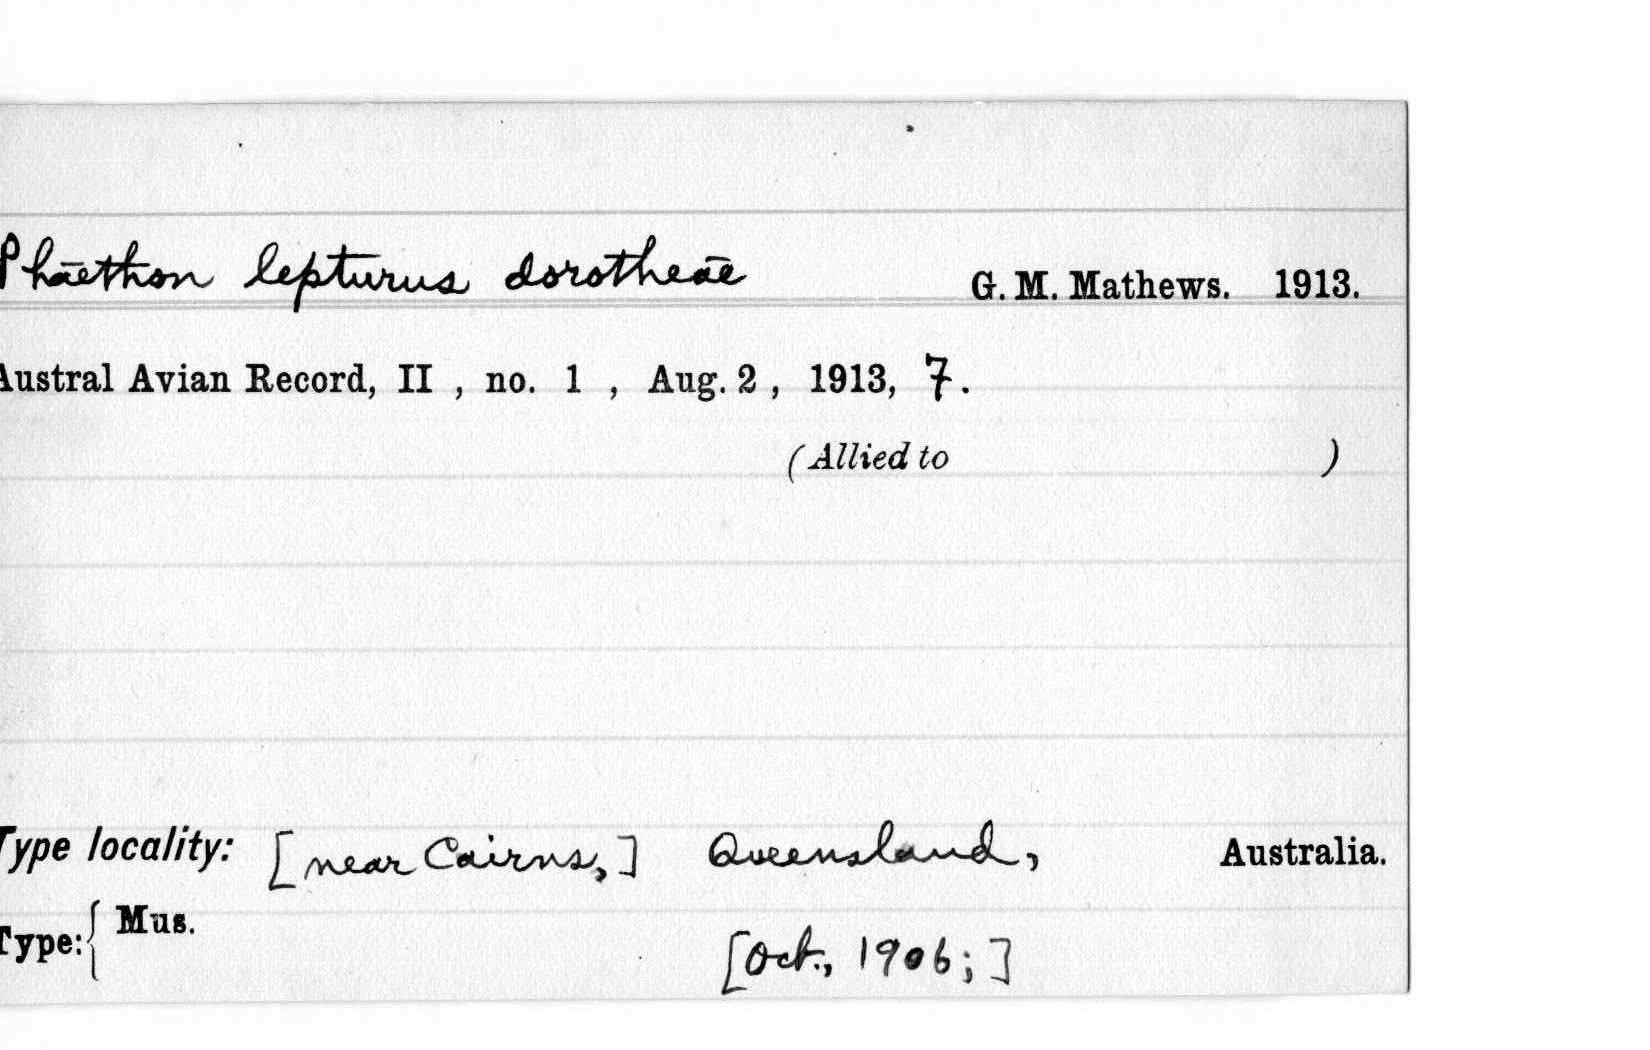 Phāethon lepturus dorotheāe G. M. Mathews. 1913.
Austral Avian Record, II , no. 1 , Aug. 2 , 1913, 7.
(Allied to )
Type locality: [near Cairns,] Queensland, Australia.
Type: { Mus.
[Oct., 1906;]